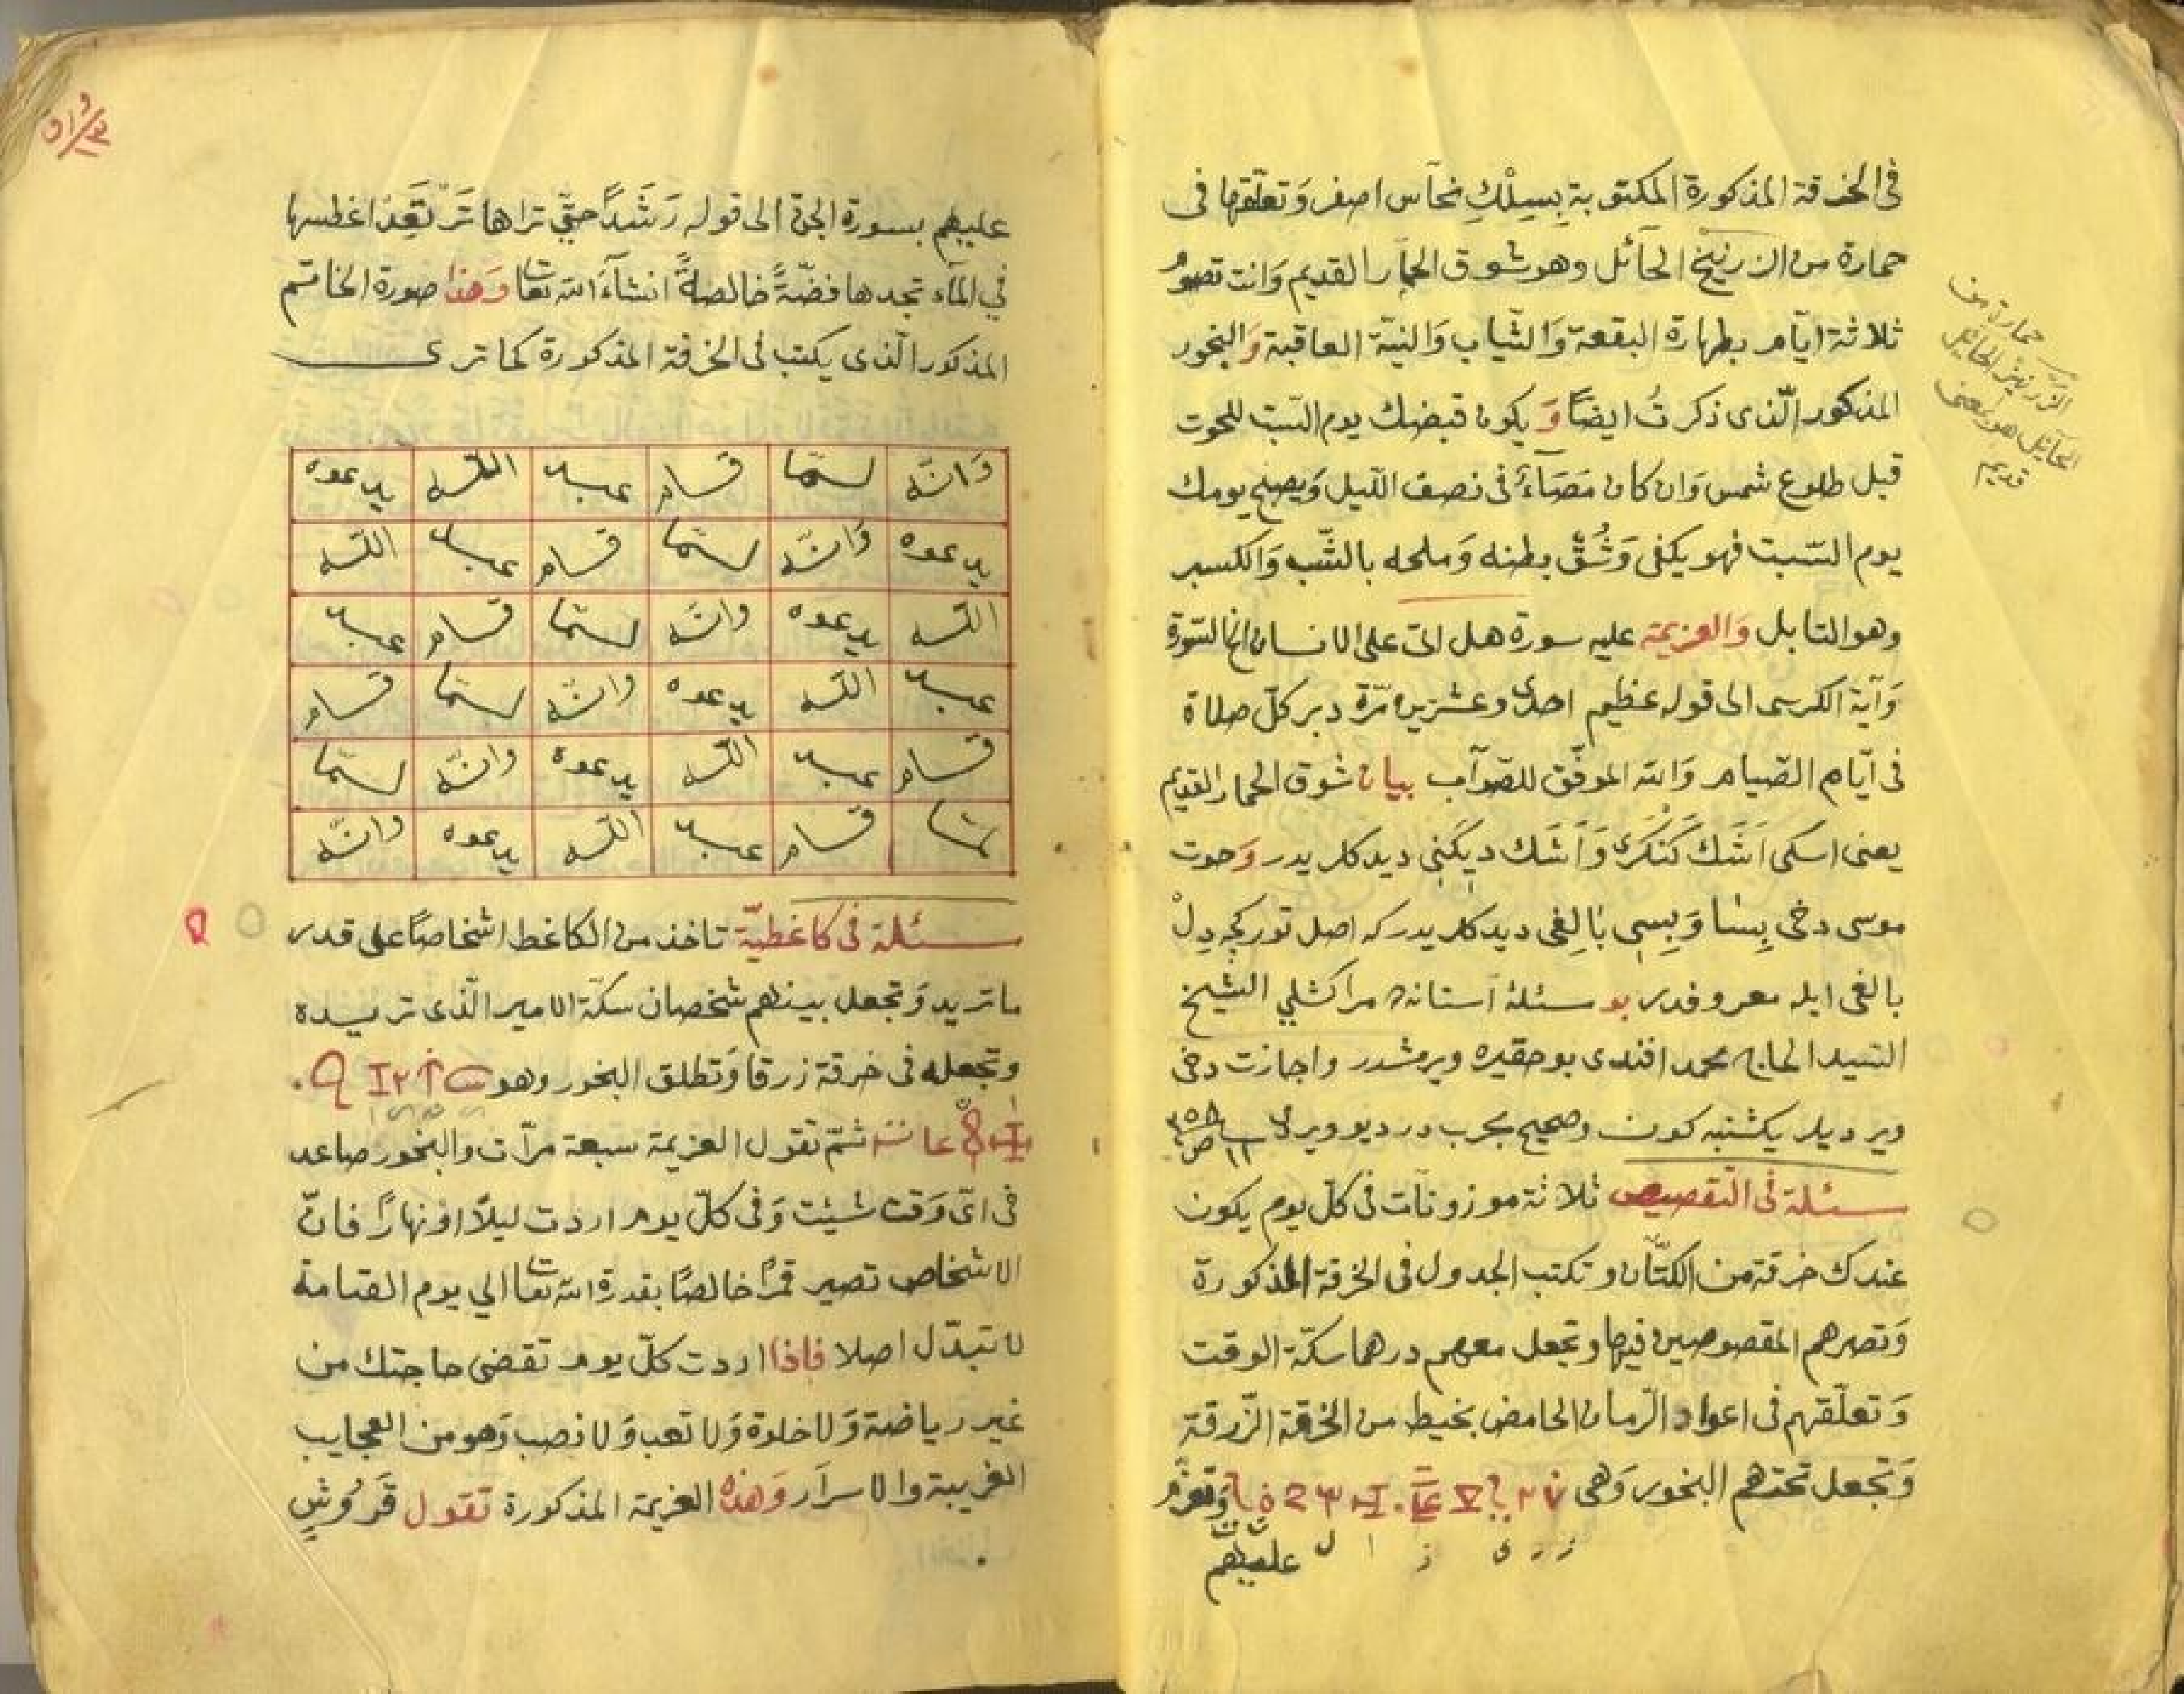 فى الخرقة المذكورة المكتوبة بِسِلْكِ نحآس اصفر وَتعلّقها فى
حمارة من الزرنيخ الحآئل وهو شوق الحمار القديم وَانت تصوم
ثلاثة ايّام بطهارة البقعة وَالثّياب وَالنيّة العاقبة وَالبخور
المذكور الّذى ذكرتُ ايضاً وَيكون قبضك يوم السّبت للحوت
قبل طلوع شمس وَان كان مَصَآءً فى نصف اللّيل وَيصبح يومك
يوم السّبت فهو يكفى وَشُقّ بطنه وَملحه بالشّب وَالكسبر
وهو التابل وَالعزيمة عليه سورة هل اتى على الانسان الخ السّورة
وَآية الكرسى الى قوله عظيم احدى وعشرين مرّة دبر كلّ صلاة
فى ايّام الصّيام وَالله الموفّق للصّوآب بيان شوق الحمار القديم
يعنى اسكى اَشَكْ وَاَشَك ديكَنِى ديدكلريدر وَحوت
موسى دخى بِسْا وَبِسِى بَالِغى ديدكلريدر كه اصل تور كجه دِلْ
بالغى ايله معروفدر بو سئلۀ آستانه مراكشلي الشيخ
السّيد الحاج محمد افندى بو حقيره ويرمشدر واجازت دخى
ويرديلر يكشنبه كون وصحيح مجرب درديو ويرلا
سئلة فى التّقصيص ثلاثة موزونآت فى كلّ يوم يكون
عندك خرقة من الكتّان و تكتب الجدول فى الخرقة المذكورة
وَتصرهم المقصوصين فيها وتجعل معهم درهما سكّة الوقت
وَتعلّقهم فى اعواد الرّمان الحامض بخيط من الخرقة الزّرقة
وَتجعل تحتهم البخور وَهى وَتعزّم
عليهم
حمارة من
الزرنيخ الحائل
الحآئل هو يعنى
قديم
عليهم بسورة الجنّ الى قوله رَشَداً حتّى تراها تَرْتَعِدْ اغطسها
في المآء تجدها فضّةً خالصةً انشآءَ الله تعا وَهذا صورة الخاتم
المذكور الّذى يكتب فى الخرقة المذكورة كما ترى
وَانّه لـمّا قـام عبد اللّـه يدعوه
يدعوه وَانّه لـمّا قـام عبد اللّـه
اللّـه يدعوه وانّه لـمّا قـام عبد
عبد اللّـه يدعوه وانّه لـمّا قـام
قـام عبد اللّـه يدعوه وانّه لـمّا
لمّا قـام عبد اللّـه يدعوه وانّه
سئلة فى كاغطيّة تاخذ من الكاغط اشخاصاً على قدر
ماتريد وَتجعل بينهم شخصان سكّة الامير الّذى تريده
وتجعله فى خرقة زرقا وَتطلق البخور وهو
ثمّ تقول العزيمة سبعة مرّات والبخور صاعد
فى اىّ وَقت شيئت وَفى كلّ يوم اردت ليلاً اوْ نهاراً فانّ
الاشخاص تصير قمراً خالصًا بقدرة الله تعا الي يوم القيامة
لا تبدّل اصلا فاذا اردت كلّ يوم تقضى حاجتك من
غير رياضة وَلا خلوة وَلا تعب وَلا نصب وَهو من العجايب
الغريبة والاسرار وَهذه العزيمة المذكورة تقول قَرْوُشٍ